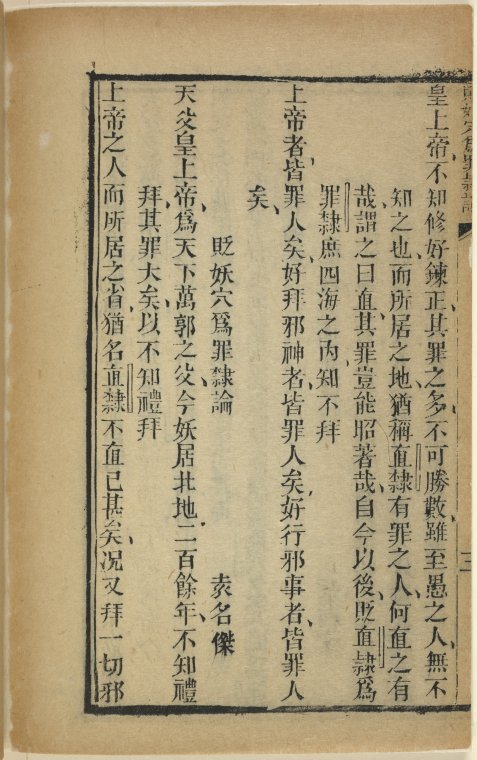 皇上帝不知修好鍊正其罪之多不可勝數雖至愚之人無不
知之也而所居之地猶稱直隸有罪之人何直之有
哉謂之曰直其罪豈能昭著哉自今以後貶直隸爲
罪隸庶四海之內知不拜
上帝者皆罪人矣好拜邪神者皆罪人矣好行邪事者皆罪人
矣
貶妖穴爲罪隸論
袁名傑
天父皇上帝爲天下萬郭之父今妖居北地二百餘年不知禮
拜其罪大矣以不知禮拜
上帝之人而所居之省猶名直隸不直已甚矣况又拜一切邪